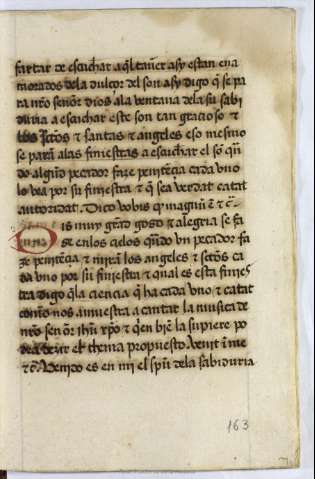 fartar de escuchar aql tañer asy estan ena
morados dela dulçor del son asy digo q̃ se pa
ra nr̃o señor dios ala ventana dela su sabi
duria a escuchar este son tan gracioso &
los sc̃os & santas & angeles eso mesmo
se parã alas finiestras a escuchar el sõ qñ
do algũo pecador faze peniteçia cada vno
lo vea por su finiestra & q̃ sea verdat catat
autoridat. Dico vobis q
is muy grãd gozo & alegria se fa
ze enlos cielos qñdo vn pecador fa
ze peniteçia & mirãn los angeles & sc̃tos ca
da vno por su finiestra & qual es esta finies
tra digo q̃ la ciencia q̃ ha cada vno & catat
commo nos amuestra a cantar la musica de
nr̃o señor ihũ xp̃o & q̃en biẽ la supiere po
dra dezir el thema propuesto venit ĩ me
& c̃. Venido es en mi el spũ dela sabiduria
163